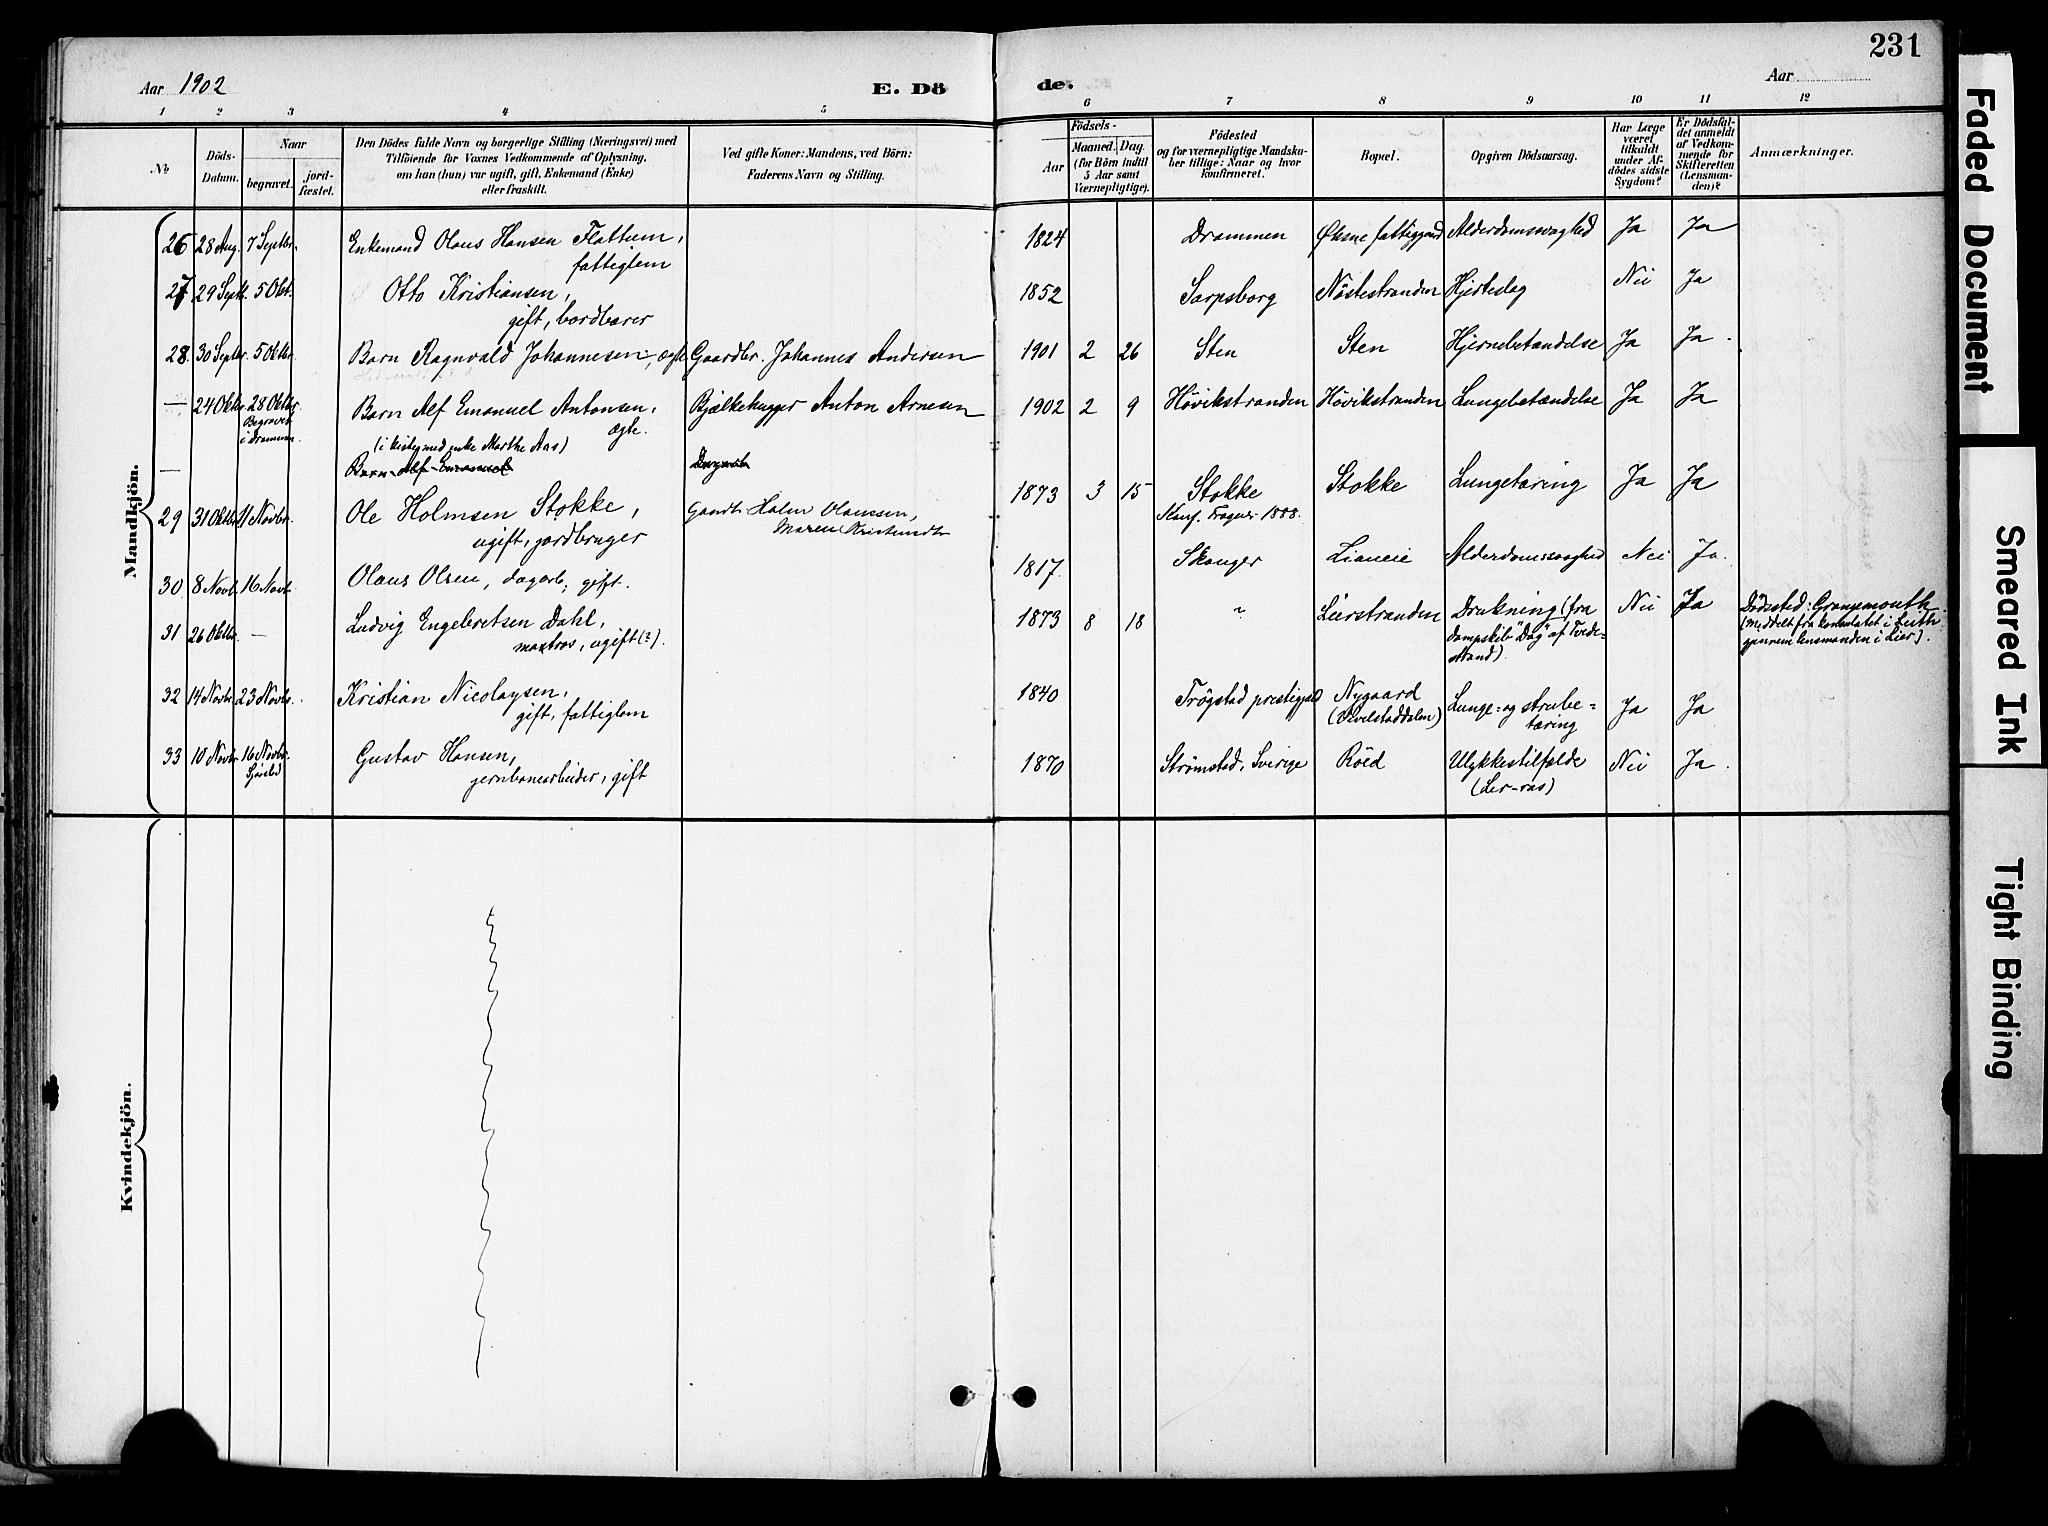 231
Aar 1902
E. Dö
de.
Aar
1 2 3 4 5 6 7 8 9 10 11 12
No
Döds-Datum.
Naar
begravet.
jord-fæstet.
Den Dödes fulde Navn og borgerlige Stilling (Næringsvei) med
Tilföiende for Voxnes Vedkommende af Oplysning,
om han (hun) var ugift, gift, Enkemand (Enke)
eller fraskilt.
Ved gifte Koner: Mandens, ved Börn:
Faderens Navn og Stilling.
Födsels-
Aar
Maaned. Dag.
(for Börn indtil
5 Aar samt
Værnepligtige).
Födested
og for værnepligtige Mandska-
ber tillige: Naar og hvor
konfirmeret.
Bopæl.
Opgiven Dödsaarsag.
Har Læge
været
tilkaldt
under Af-
dödes sidste
Sygdom?
Er Dödsfal-
det anmeldt
af Vedkom-
mende for
Skifteretten
(Lensman-
den)?
Anmærkninger.
Mandkjön.
26 28 Aug. 7 Septbr. Enkemand Olaus Hansen Flattum, 1824 Drammen Øksne fattiggaard Alderdomssvaghed Ja Ja
fattiglem
27 29 Septb. 5 Okt. Otto Kristiansen, 1852 Sarpsborg Nöstestranden Hjerteslag Nei Ja
gift, bordbærer
28. 30 Septbr. 5 Oktbr. Barn Ragnvald Johannesen, ægte Gaardbr. Johannes Andersen 1901 2 26 Sten Sten Hjernebetændelse Ja Ja.
— 24 Oktbr. 28 Oktbr. Barn Alf Emanuel Antonsen, Bjælkehugger Anton Arnesen 1902 2 9 Høvikstranden Høvikstranden Lungebetændelse Ja Ja
Begravet i Drammen. ægte.
(i kiste med enke Marthe Aas)
— Barn Alf Emanuel
29 31 Oktbr. 9 Novbr. Ole Holmsen Stokke, Gaardbr. Holm Olaussen, 1873 3 15 Stokke Stokke Lungetæring Ja Ja
Maren Kristiansdtr Konf. Fragner 1888.
ugift, jordbruger
30 8 Novb. 16 Novb. Olaus Olsen, dagarb., gift. 1817. Skauger Lianeie Alderdomssvaghed Nei Ja.
31 26 Oktbr. — Ludvig Engebretsen Dahl, 1873 8 18 " Lierstranden Drukning (fra Nei Ja Dödssted: Grangemouth
matros, ugift (?). dampskib "Dag" af Tvede- (Meddelt fra konsulatet i Leith
strand). gjennem lensmanden i Lier).
32 14 Novbr. 23 Novbr. Kristian Nicolaysen, 1840 Trögstad prestegjeld Nygaard Lunge- og strube- Ja Ja
gift, fattiglem (Kvelstaddalen) tæring
33 10 Novb. 16 Novbr. Gustav Hansen, 1870 Strömsted, Sverige Röed Ulykkestilfælde Nei Ja.
jernbanearbeider, gift (Ler-ras)
Kvindekjön.
Faded Document
Smeared Ink
Tight Binding